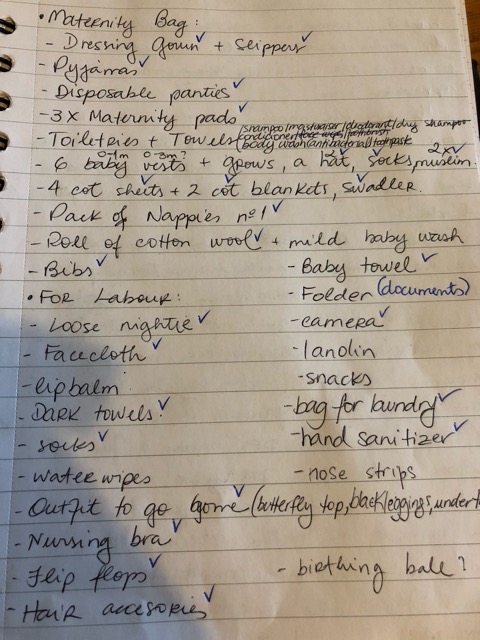 • Maternity Bag:
- Dressing gown ✓ + Slippers ✓
- Pyjamas ✓
- Disposable panties ✓
- 3x Maternity pads ✓
- Toiletries + Towels (shampoo/moisturiser/deodorant/dry shampoo
conditioner/face wipes/toothbrush
body wash/antibacterial/toothpaste
- 6 baby vests + grows, a hat, socks, 2x muslin.
0-1m 0-3m?
- 4 cot sheets + 2 cot blankets, swadler.
- Pack of Nappies nº1 ✓
- Roll of cotton wool ✓ + mild baby wash
- Bibs ✓
- Baby towel ✓
• For Labour:
- Folder (documents)
- Loose nightie ✓
- camera ✓
- Facecloth ✓
- lanolin
- lip balm
- snacks
- DARK towels! ✓
- bag for laundry ✓
- socks ✓
- hand sanitizer ✓
- water wipes
- nose strips
- Outfit to go home ✓ (butterfly top, black leggings,
- Nursing bra ✓
- Flip flops ✓
- birthing ball?
- Hair accesories ✓